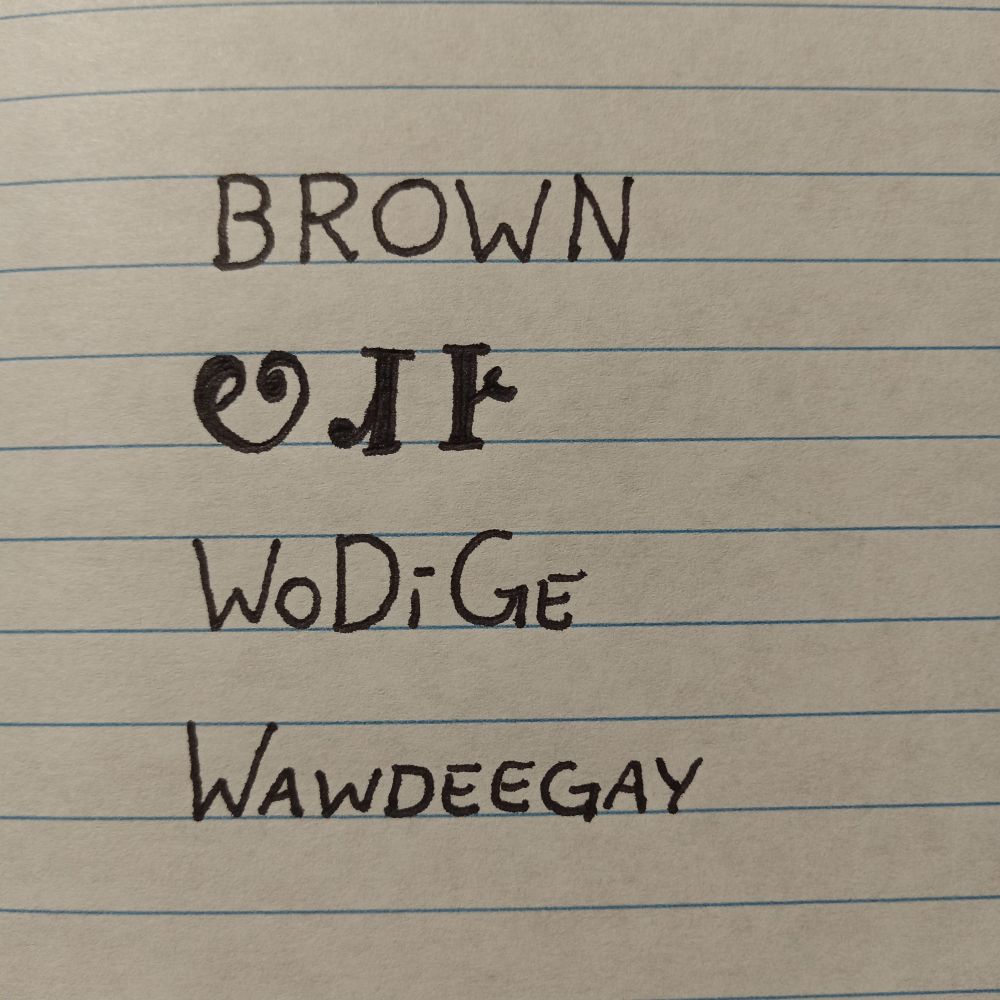 BROWN
ᎤᏗᎨ
WoDiGE
WAWDEEGAY